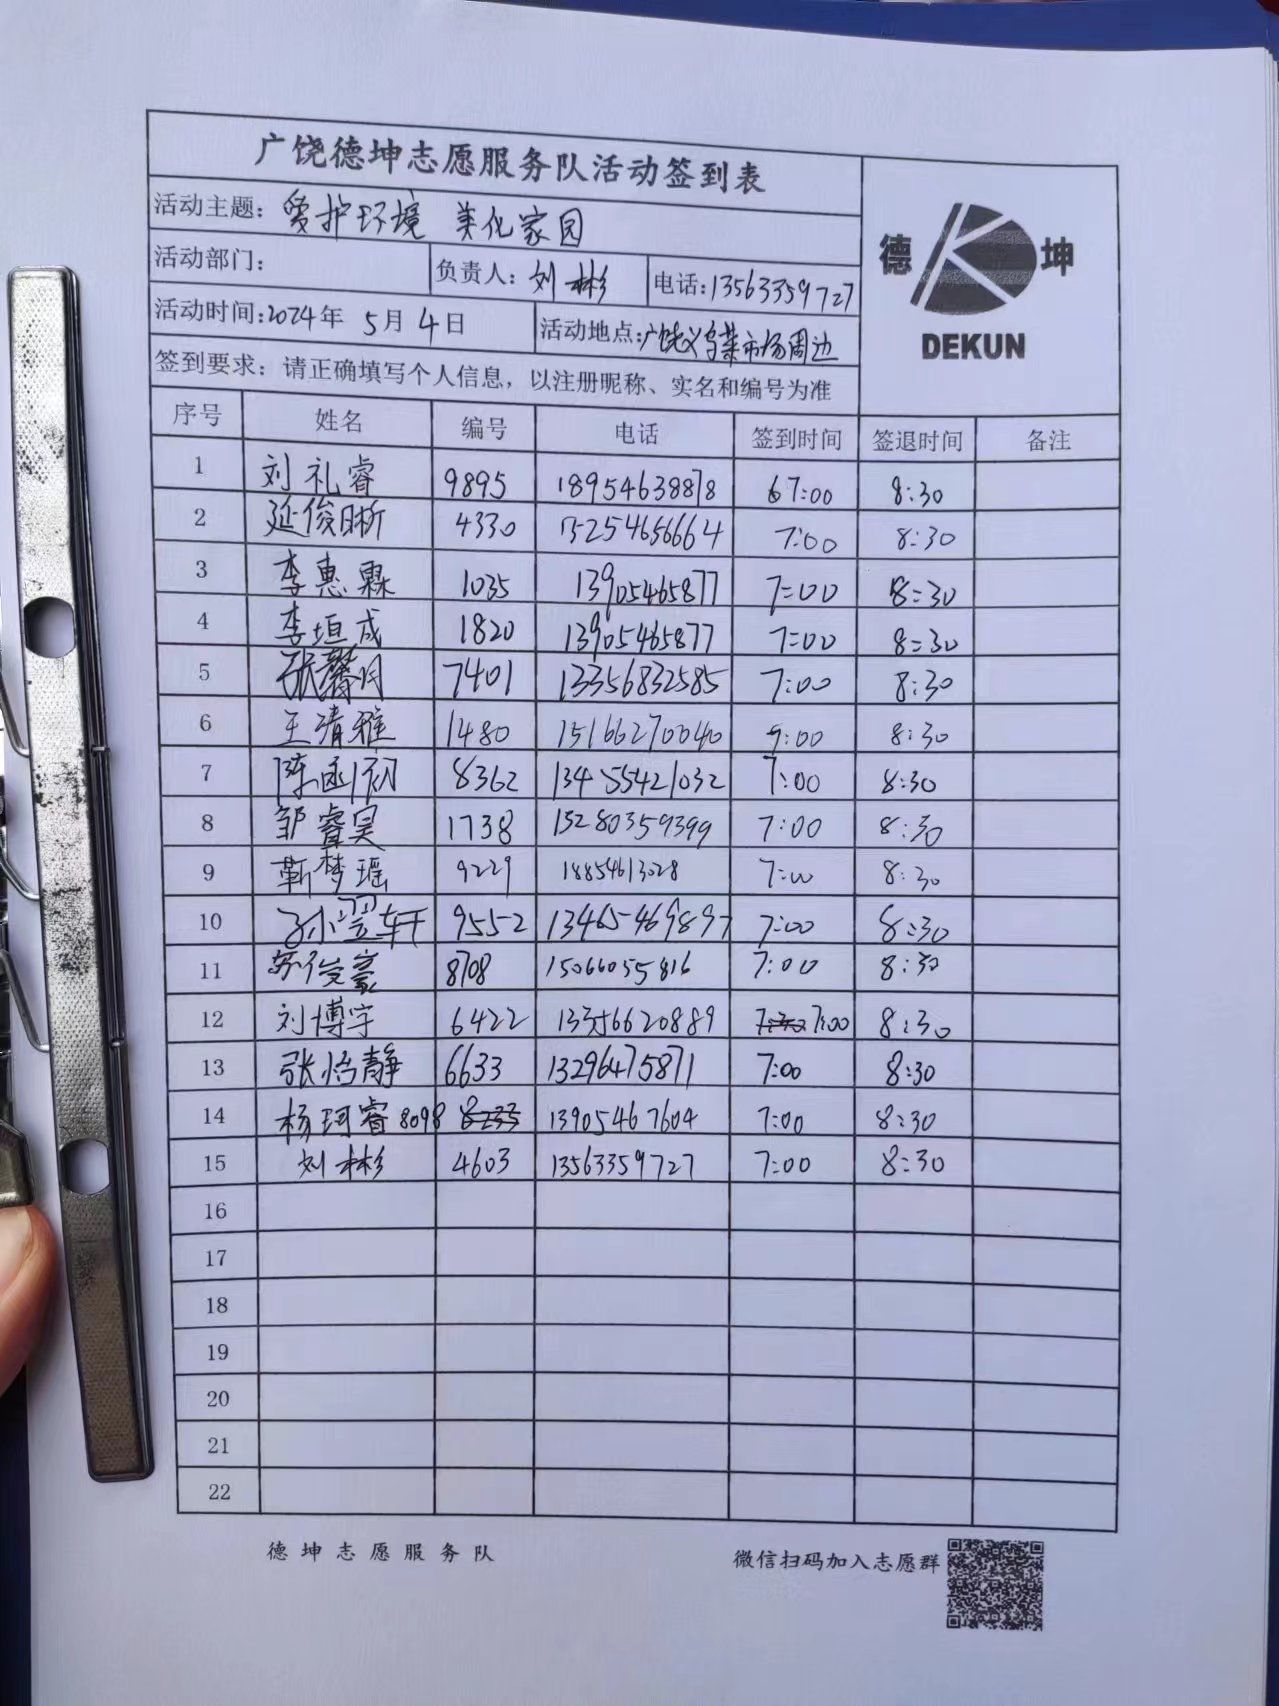 广饶德坤志愿服务队活动签到表
活动主题: 爱护环境 美化家园
德 坤
DEKUN
活动部门: 负责人: 刘彬 电话: 13563359727
活动时间: 2024年 5月 4日 活动地点: 广饶义乌菜市场周边
签到要求: 请正确填写个人信息，以注册昵称、实名和编号为准
序号 姓名 编号 电话 签到时间 签退时间 备注
1 刘礼睿 9895 18954638878 7:00 8:30
2 延俊晰 4330 15254656664 7:00 8:30
3 李惠霖 1035 13905465877 7:00 8:30
4 李垣成 1820 13905465877 7:00 8:30
5 张馨月 7401 13356832585 7:00 8:30
6 王清雅 1480 15166270040 7:00 8:30
7 陈函初 8362 13455421032 7:00 8:30
8 邹睿昊 1738 15280359399 7:00 8:30
9 靳梦瑶 9229 18854613028 7:00 8:30
10 孙翌轩 9552 13465469897 7:00 8:30
11 苏俊豪 8708 15066055816 7:00 8:30
12 刘博宇 6422 13356620889 7:00 8:30
13 张怡静 6633 13296475871 7:00 8:30
14 杨珂睿 8098 13905467604 7:00 8:30
15 刘彬 4603 13563359727 7:00 8:30
16
17
18
19
20
21
22
德坤志愿服务队 微信扫码加入志愿群